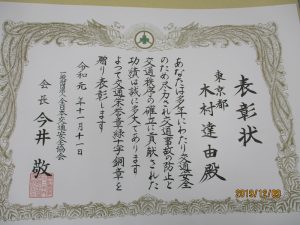 表彰状
東京都
木村達由殿
あなたは多年にわたり交通安全
のため尽力され交通事故の防止と
交通秩序の確立に貢献された
功績は誠に多大であります
よって交通栄誉章緑十字銅章を
贈り表彰します
令和元年十一月十一日
一般財団法人全日本交通安全協会
会長 今井敬